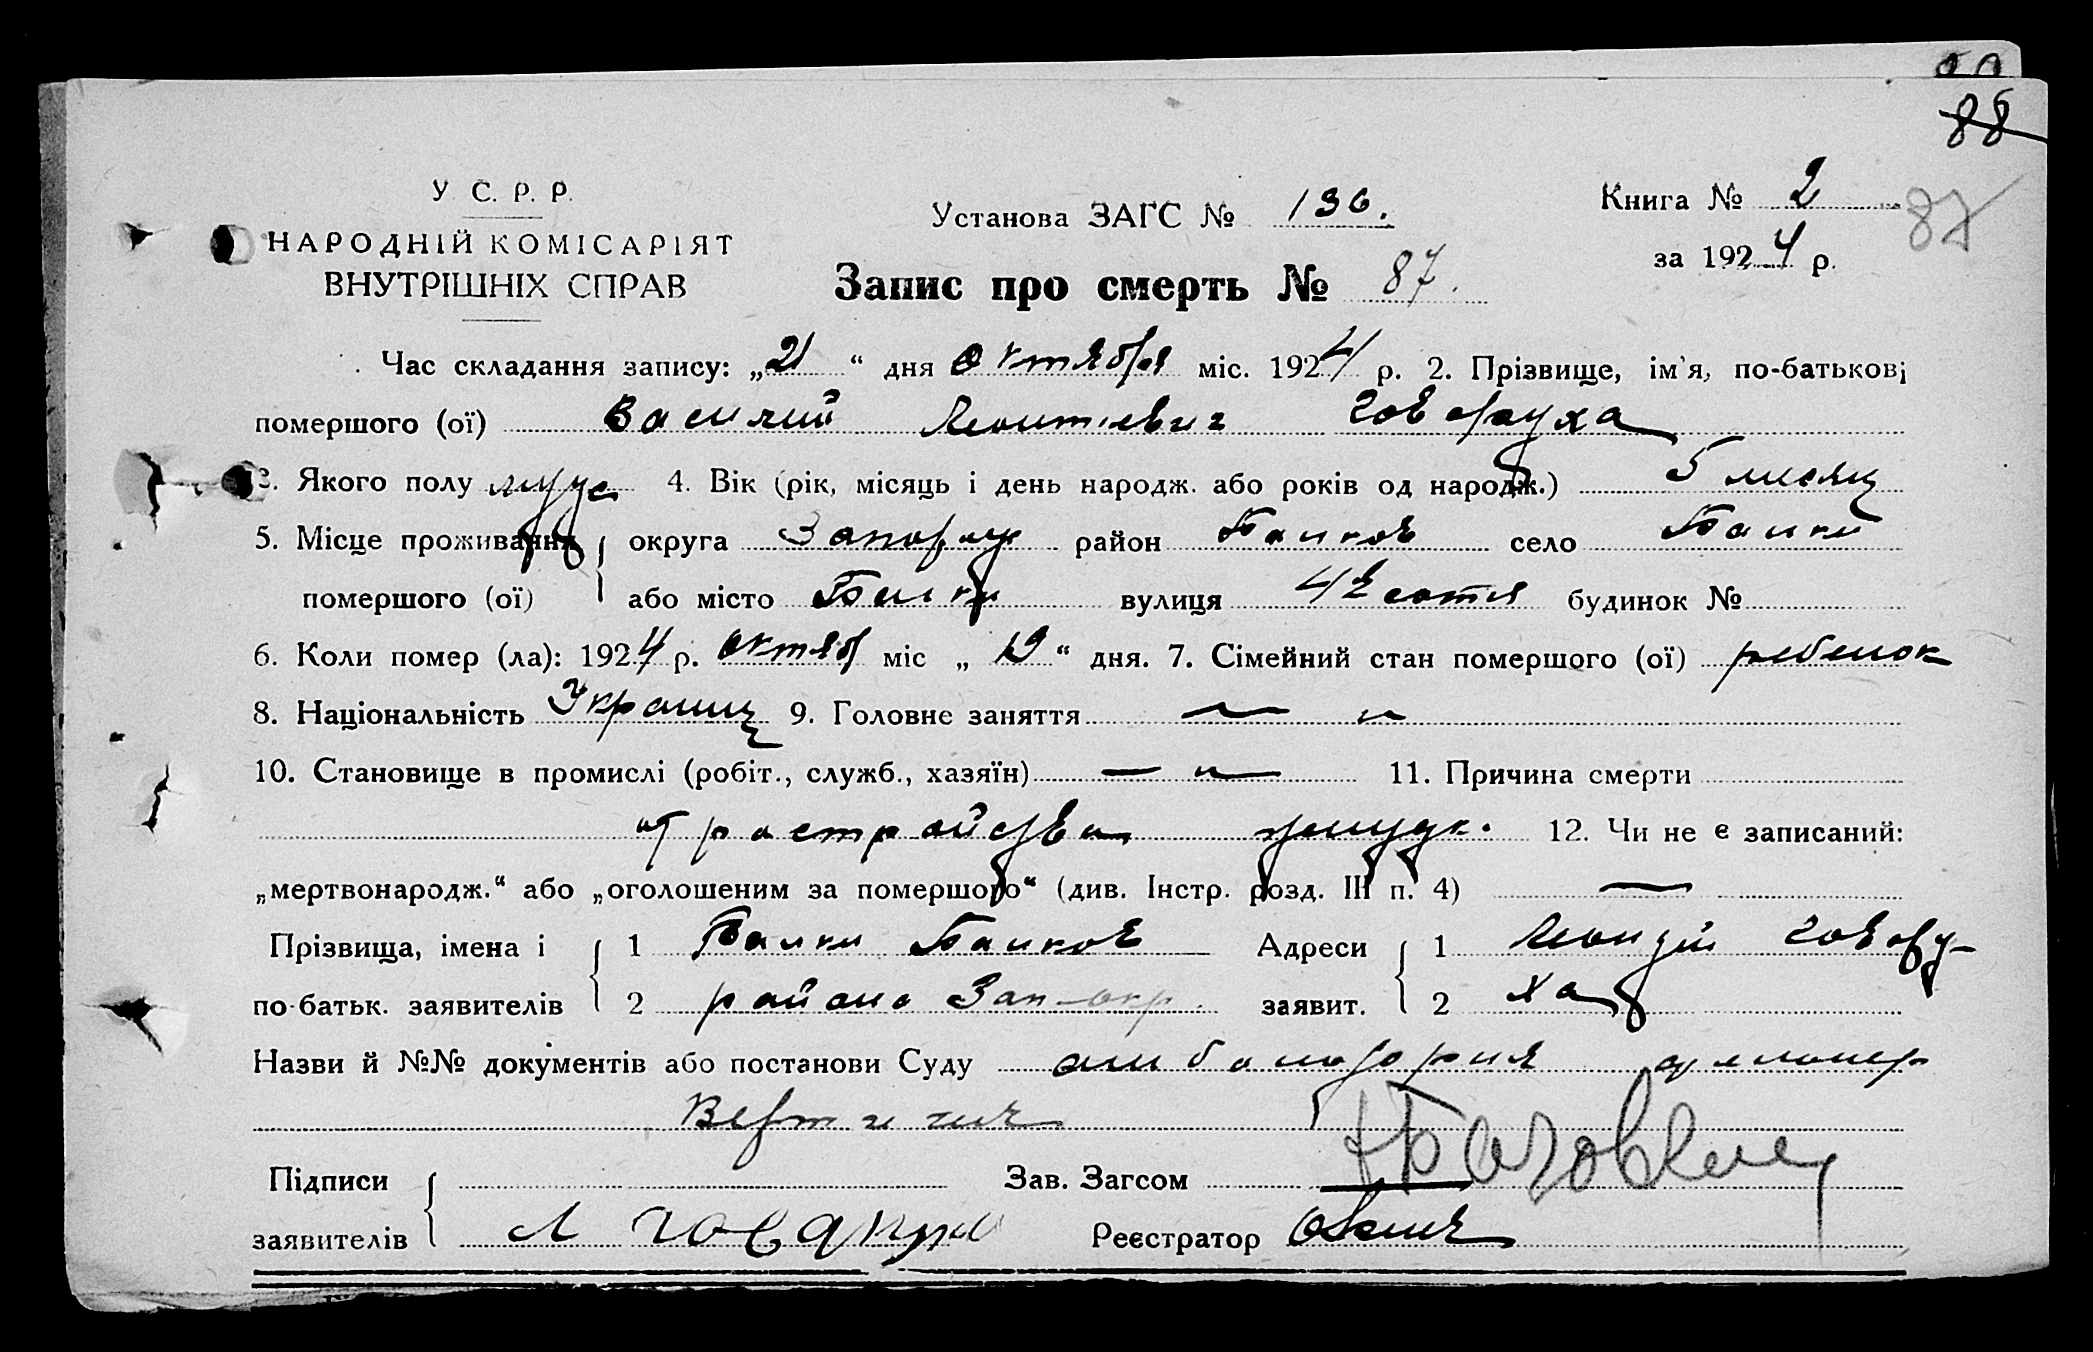 88
87
У. С. Р. Р.
НАРОДНІЙ КОМІСАРІЯТ
ВНУТРІШНІХ СПРАВ
Установа ЗАГС № 136.
Книга № 2
за 1924 р.
Запис про смерть № 87.
Час складання запису: „21“ дня Октября міс. 1924 р. 2. Прізвище, ім'я, по-батькові
помершого (ої) Василий Леонтіевич Говоруха
3. Якого полу муж 4. Вік (рік, місяць і день народж. або років од народж.) 5 месяц
5. Місце проживання округа Запорож район Балков село Балки
помершого (ої) або місто Балки вулиця 4я сотня будинок №
6. Коли помер (ла): 1924 р. Октяб міс „19“ дня. 7. Сімейний стан помершого (ої) ребенок
8. Національність Украинц 9. Головне заняття — „
10. Становище в промислі (робіт., служб., хазяїн) — „ — 11. Причина смерти
от растройства желудк. 12. Чи не є записаний:
„мертвонародж.“ або „оголошеним за помершого“ (див. Інстр. розд. III п. 4) —
Прізвища, імена і 1 Балки Балков Адреси 1 Говору-
по-батьк. заявителів 2 района Зап-окр. заявит. 2 ха
Назви й №№ документів або постанови Суду амболатория
Підписи Зав. Загсом
заявителів Л Реєстратор